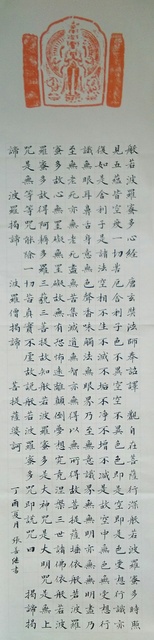 般若波羅蜜多心經 唐玄奘法師奉詔譯 觀自在菩薩行深般若波羅蜜多時照
見五蘊皆空度一切苦厄舍利子色不異空空不異色色即是空空即是色受想行識亦
復如是舍利子是諸法空相不生不滅不垢不淨不增不減是故空中無色無受想行
識無眼耳鼻舌身意無色聲香味觸法無眼界乃至無意識界無無明亦無無明盡乃
至無老死亦無老死盡無苦集滅道無智亦無得以無所得故菩提薩埵依般若波羅
蜜多故心無罣礙無罣礙故無有恐怖遠離顛倒夢想究竟涅槃三世諸佛依般若波
羅蜜多故得阿耨多羅三藐三菩提故知般若波羅蜜多是大神咒是大明咒是無上
咒是無等等咒能除一切苦真實不虛故說般若波羅蜜多咒即說咒曰 揭諦揭
諦 波羅揭諦 波羅僧揭諦 菩提薩婆訶 丁酉夏月 張善書